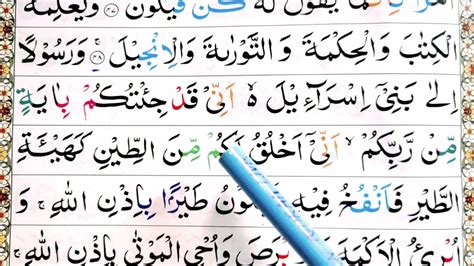 يَقُوْلُ لَهٗ كُنْ فَيَكُوْنُ ۴۷ وَيُعَلِّمُهُ
الْكِتٰبَ وَالْحِكْمَةَ وَالتَّوْرٰىةَ وَالْاِنْجِيْلَ ۴۸ وَرَسُوْلًا
اِلٰى بَنِيْٓ اِسْرَآءِيْلَ ۵ اَنِّيْ قَدْ جِئْتُكُمْ بِاٰيَةٍ
مِّنْ رَّبِّكُمْ ۙ اَنِّيْٓ اَخْلُقُ لَكُمْ مِّنَ الطِّيْنِ كَهَيْـَٔةِ
الطَّيْرِ فَاَنْفُخُ فِيْهِ طَيْرًۢا بِاِذْنِ اللّٰهِ ۚ وَ
اُبْرِئُ الْاَكْمَهَ وَاُحْيِ الْمَوْتٰى بِاِذْنِ اللّٰهِ ۚ